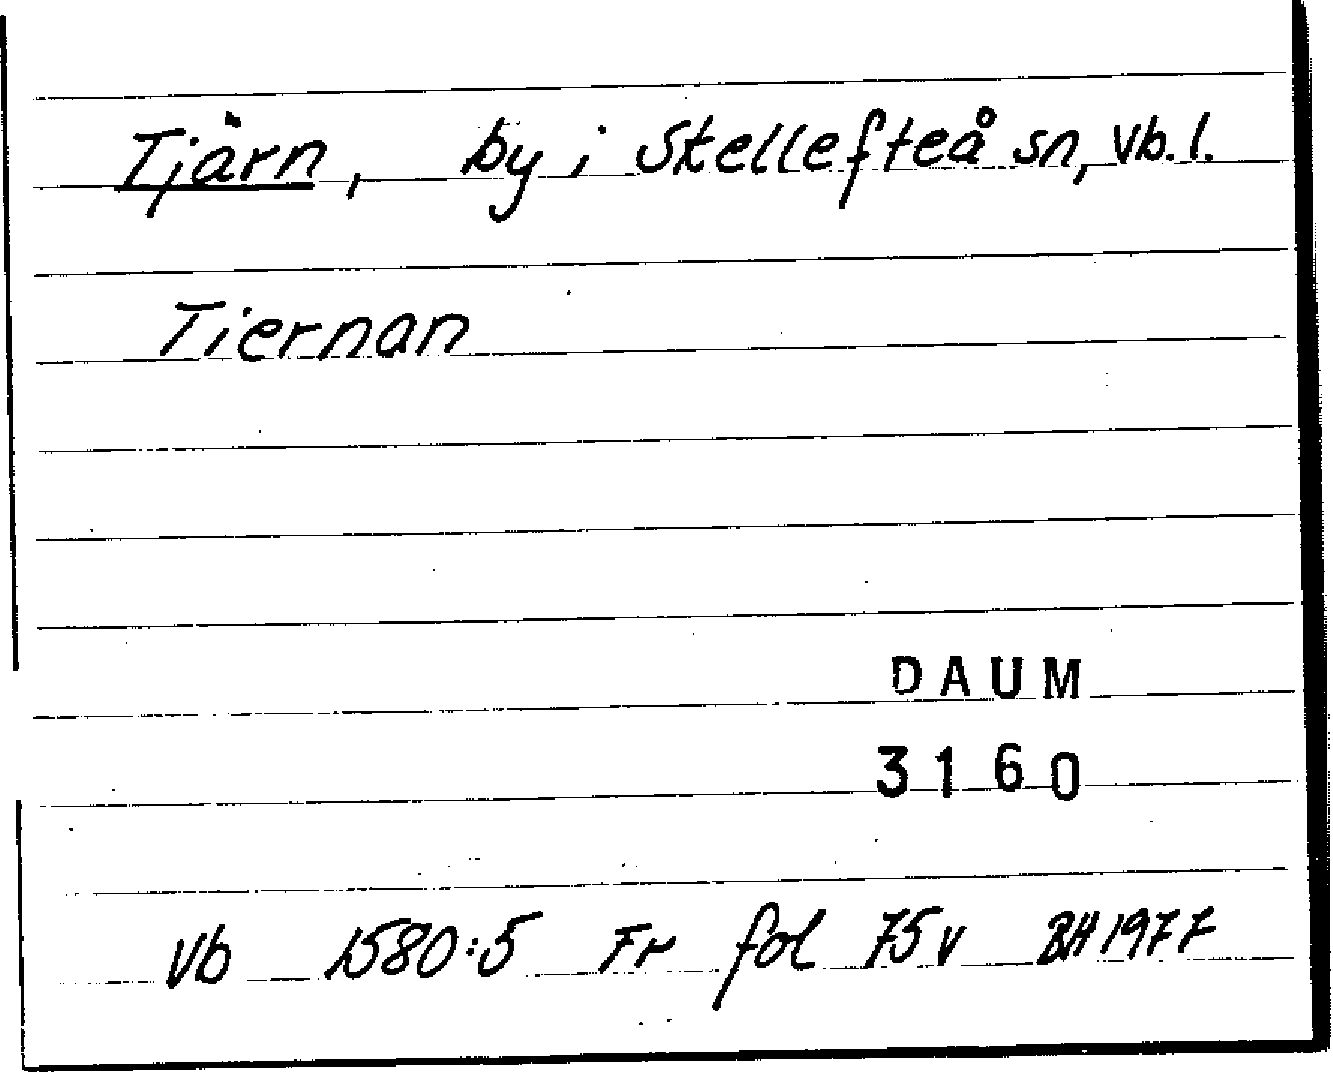 Tjärn, by i Skellefteå sn, Vb.l.
Tiernan
DAUM
3160
Vb 1580:5 Fr fol 75v BH 1977